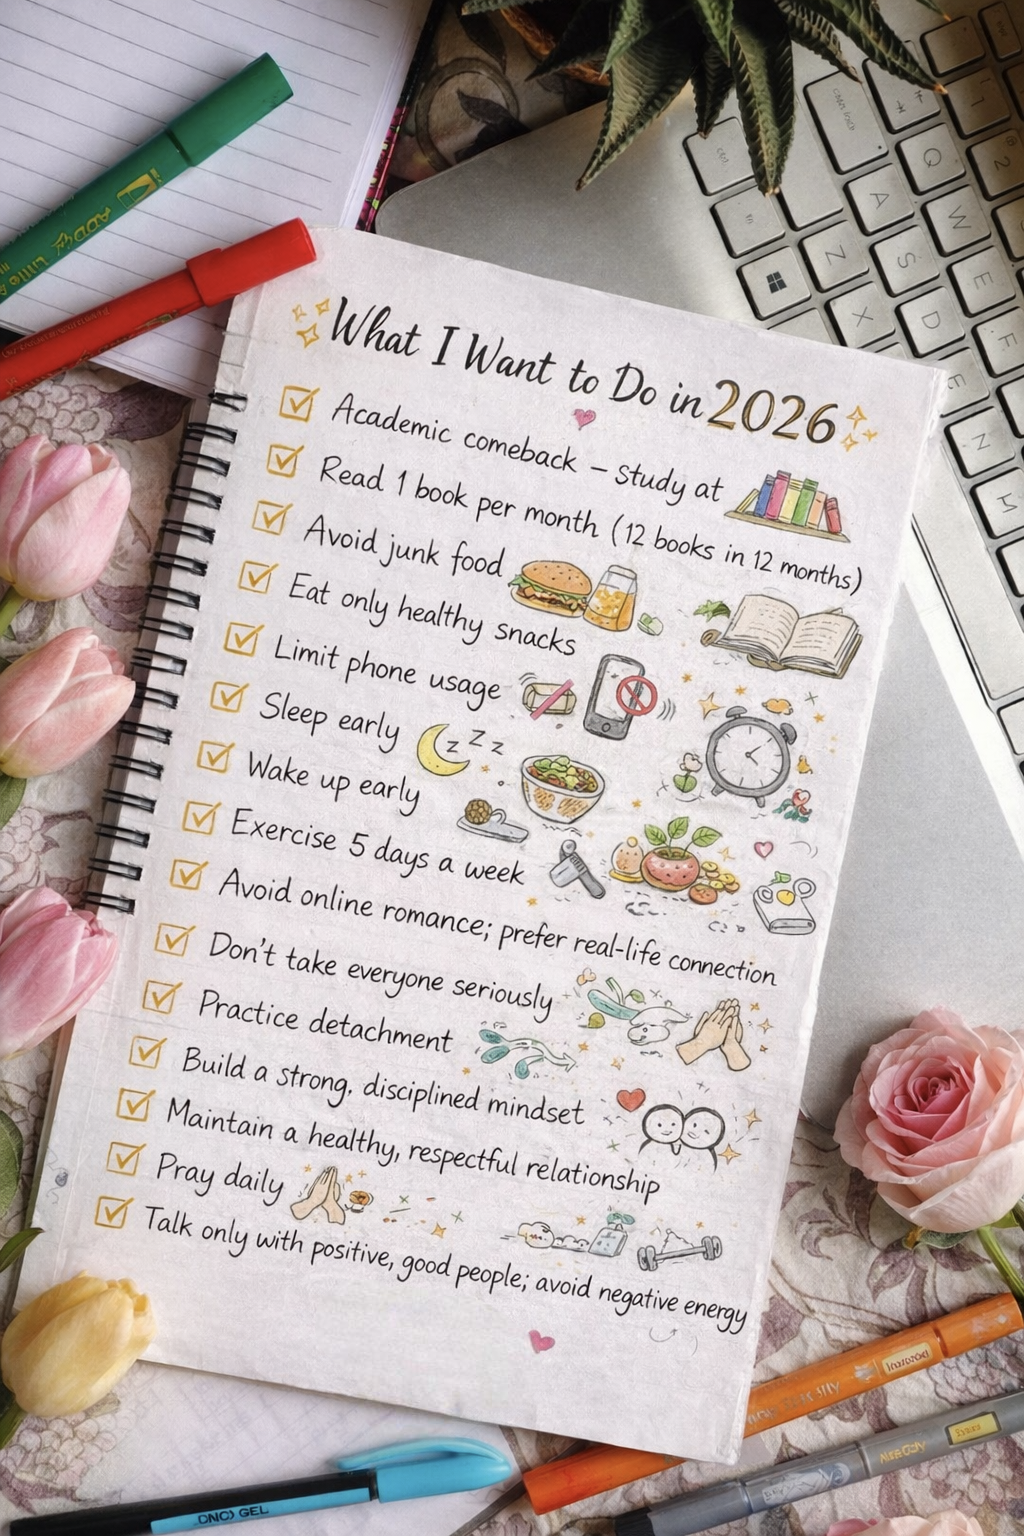 What I Want to Do in 2026
Academic comeback – study at
Read 1 book per month (12 books in 12 months)
Avoid junk food
Eat only healthy snacks
Limit phone usage
Sleep early
z z z
Wake up early
Exercise 5 days a week
Avoid online romance; prefer real-life connection
Don't take everyone seriously
Practice detachment
Build a strong, disciplined mindset
Maintain a healthy, respectful relationship
Pray daily
Talk only with positive, good people; avoid negative energy
GEL